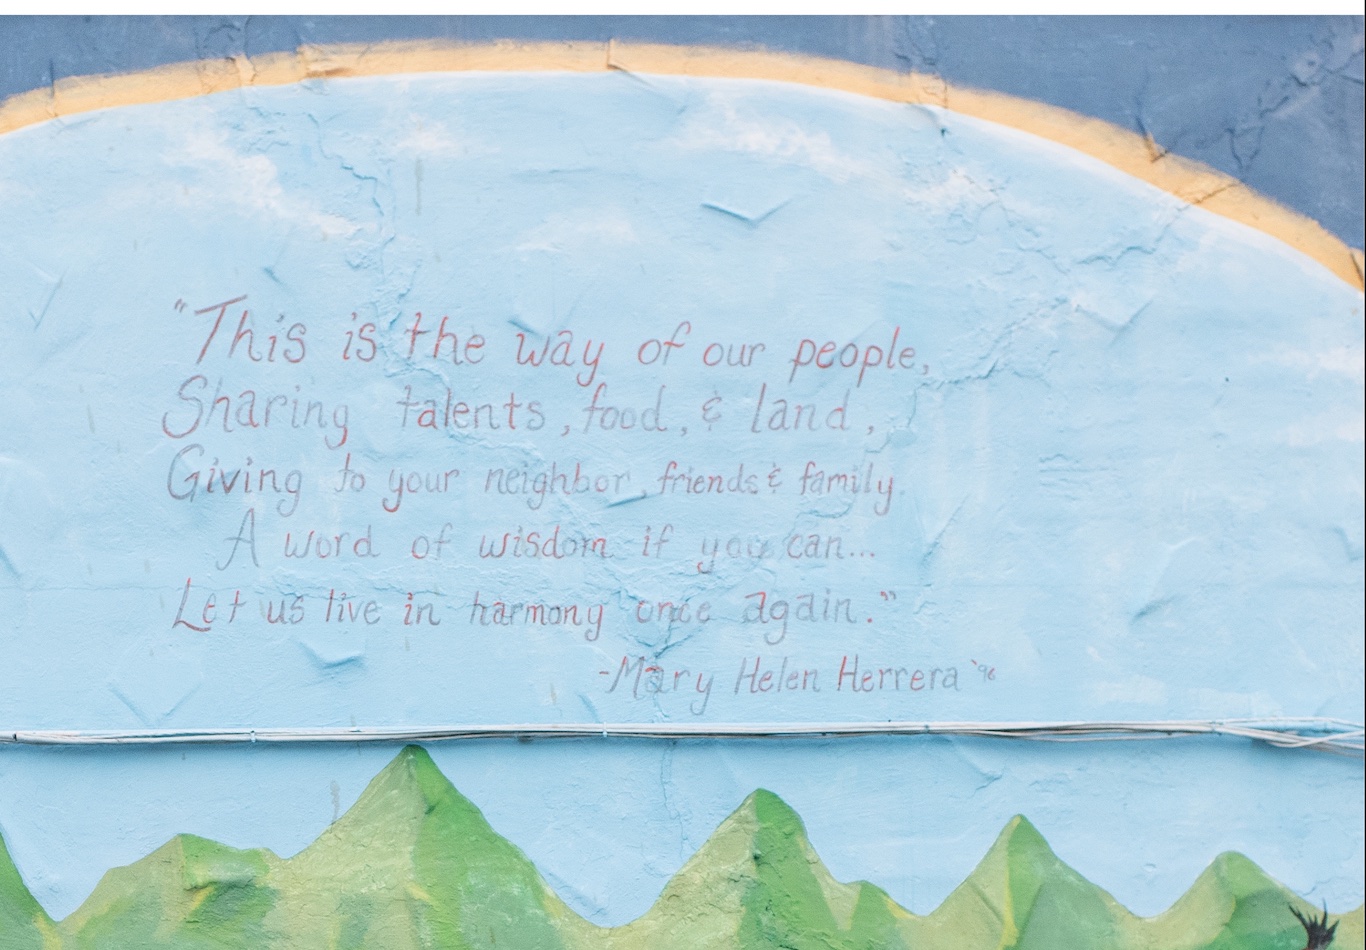 "This is the way of our people,
Sharing talents, food, & land,
Giving to your neighbor, friends & family.
A word of wisdom if you can...
Let us live in harmony once again."
-Mary Helen Herrera '96